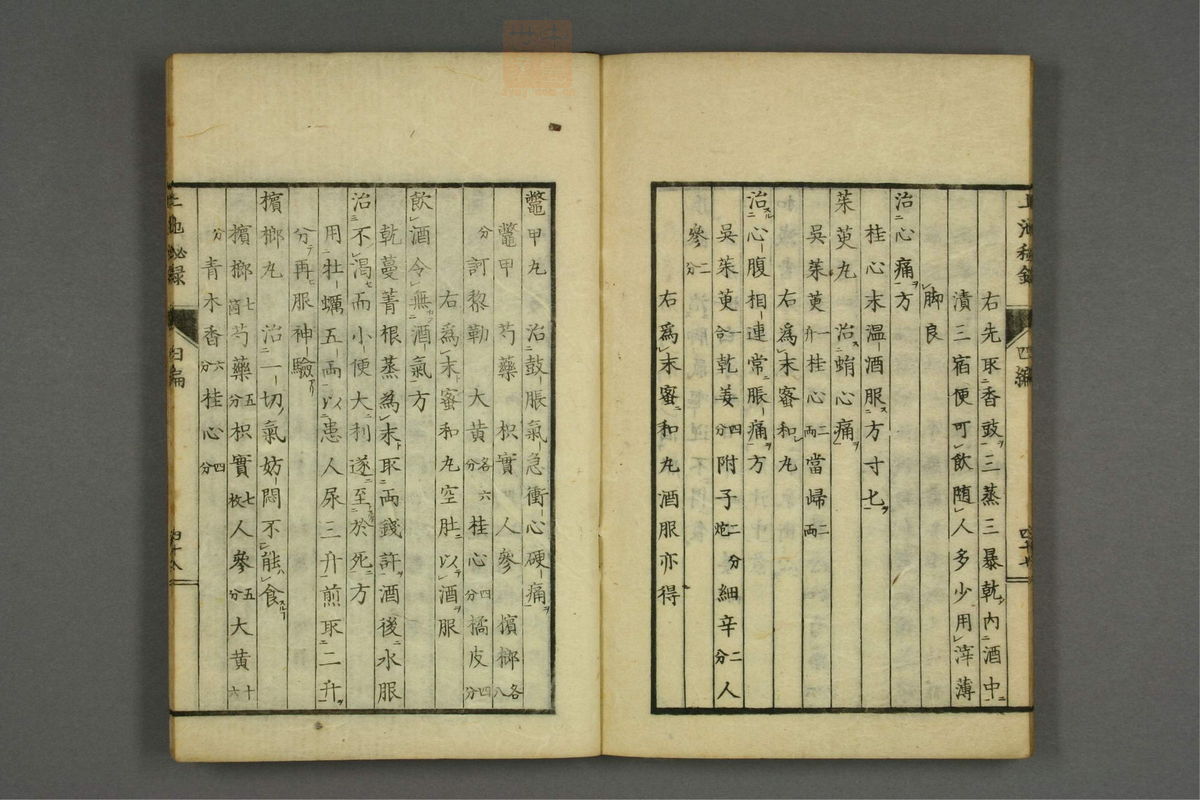 右先取香豉三蒸三暴乾內酒中
漬三宿便可飲隨人多少用滓薄
脚良
治心痛方
桂心末溫酒服方寸匕
茱萸丸　治蛕心痛
吳茱萸一升桂心二兩當歸二兩
右爲末蜜和丸
治心腹相連常脹痛方
吳茱萸一合乾姜四分附子二分炮細辛二分人
參二分
右爲末蜜和丸酒服亦得
四編
鼈甲丸　治鼓脹氣急衝心硬痛
鼈甲　芍藥　枳實　人參　檳榔各八
分訶黎勒　大黃各六桂心四分橘皮四分
右爲末蜜和丸空肚以酒服
飲酒令無酒氣方
乾蔓菁根蒸爲末取兩錢許酒後水服
治不渴而小便大利遂至於死方
用牡蠣五兩以患人尿三升煎取二升
分再服神驗
檳榔丸　治一切氣妨悶不能食
檳榔七箇芍藥五分枳實七枚人參五分大黃十六
分青木香六分桂心四分
上池秘録
四編
四十八